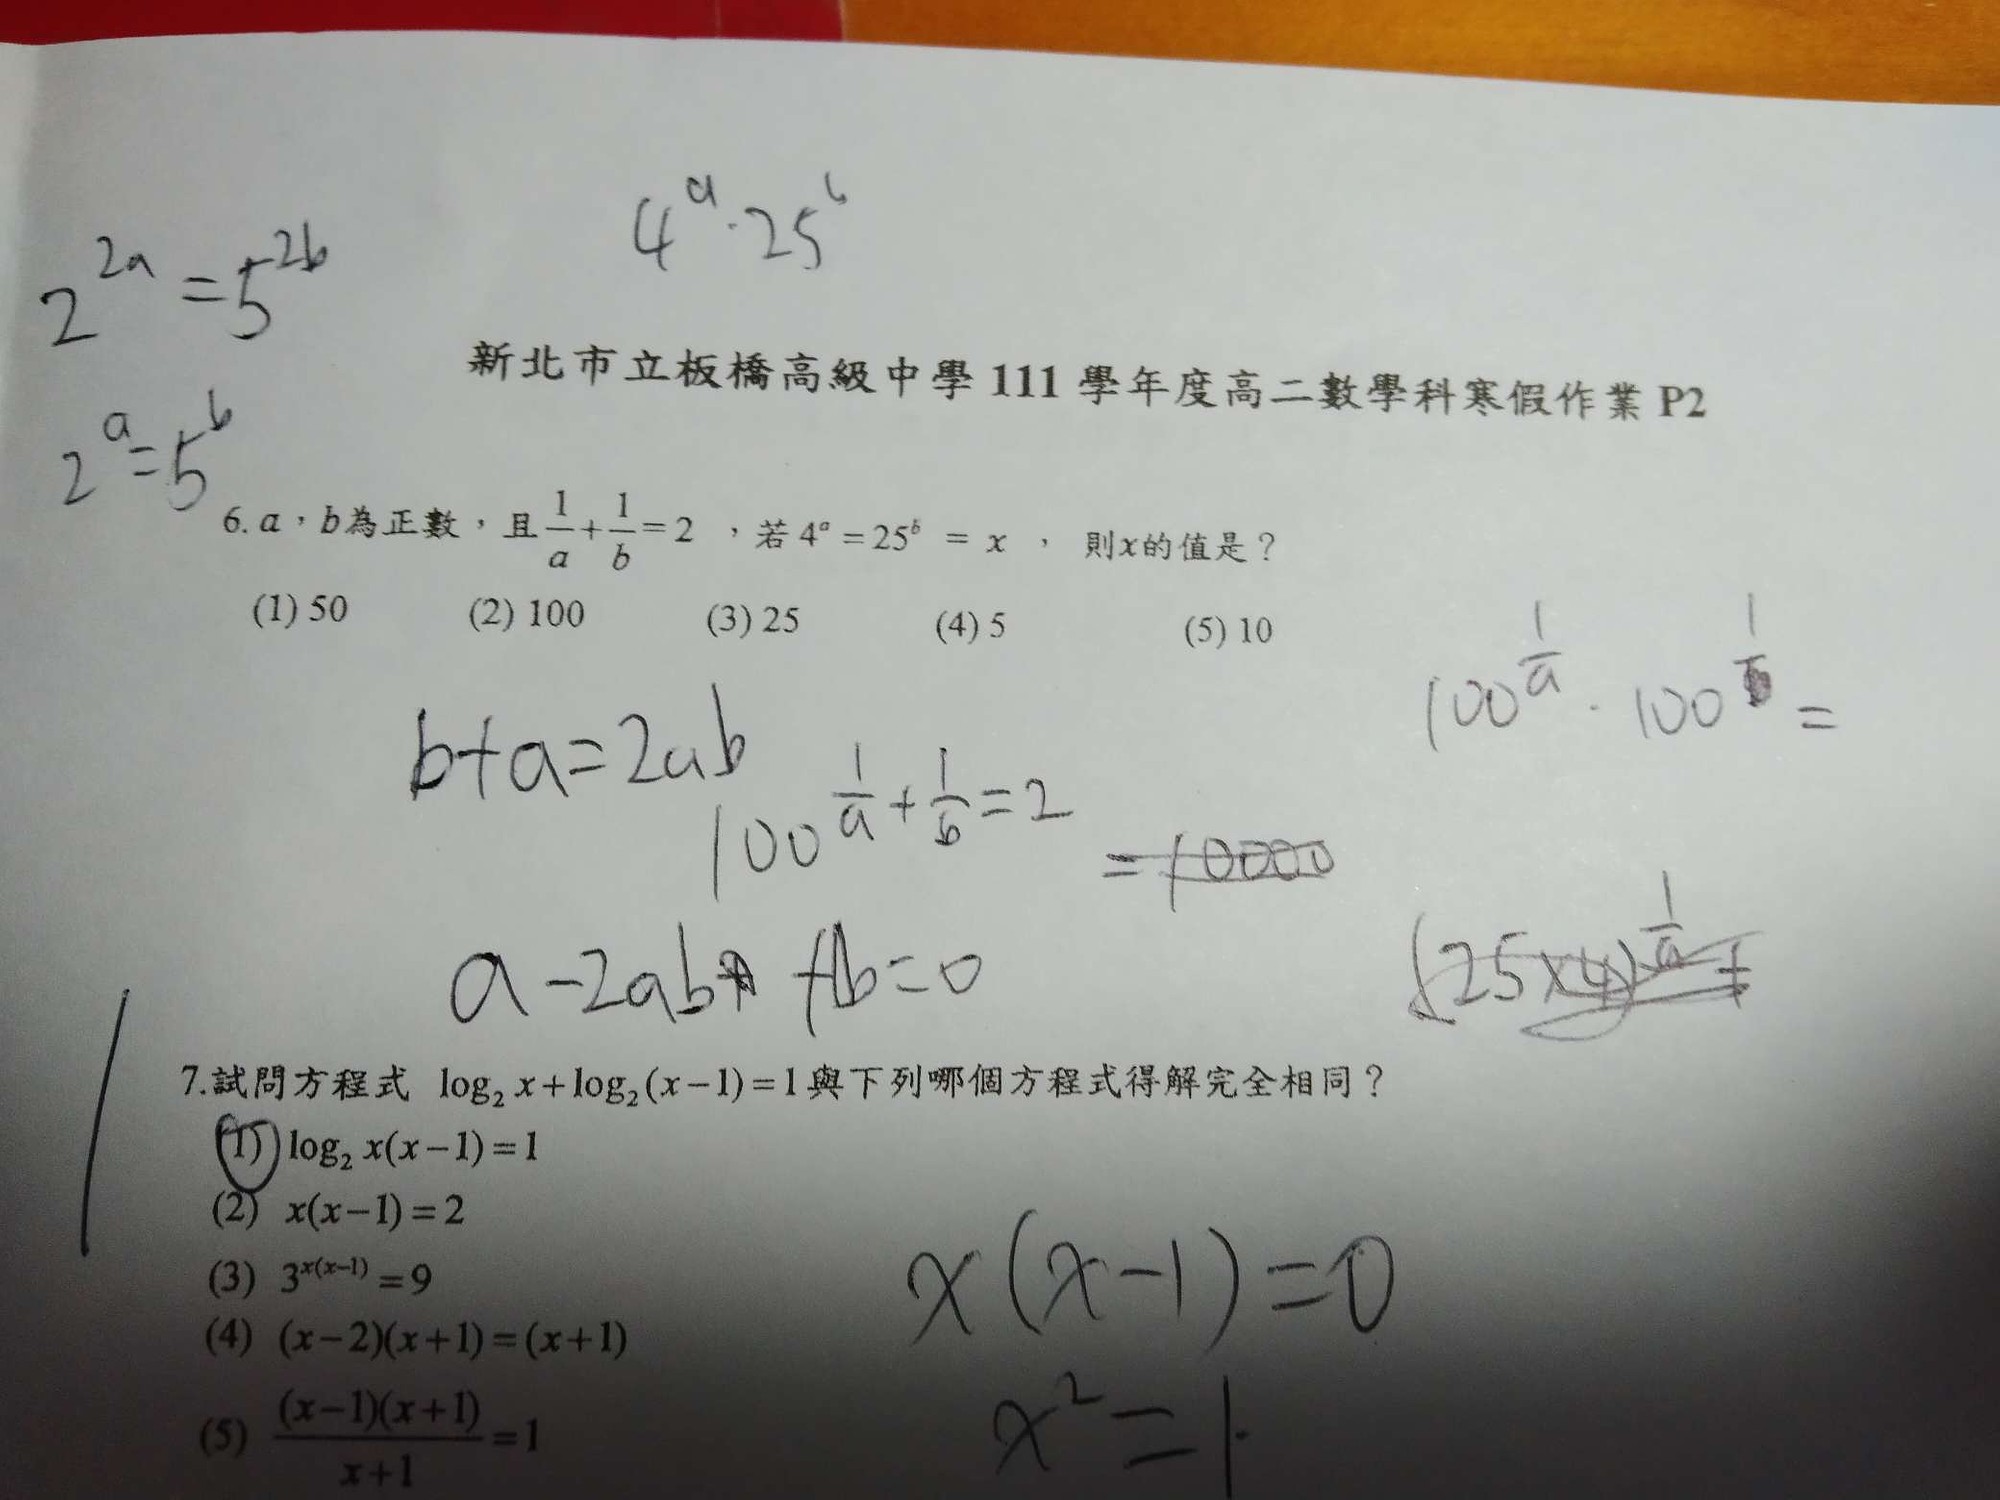 4^a · 25^b
2^{2a} = 5^{2b}
新北市立板橋高級中學 111 學年度高二數學科寒假作業 P2
2^a = 5^b
6. a，b為正數，且 1/a + 1/b = 2 ，若 4^a = 25^b = x ， 則x的值是？
(1) 50 (2) 100 (3) 25 (4) 5 (5) 10
100^{1/a} · 100^{1/b} =
b+a=2ab
100^{1/a + 1/b = 2}
= 10000
(25×4)^{1/a} =
a-2ab +b=0
7.試問方程式 log₂ x+log₂(x−1)=1與下列哪個方程式得解完全相同？
(1) log₂ x(x−1)=1
(2) x(x−1)=2
(3) 3^{x(x−1)} =9
(4) (x−2)(x+1)=(x+1)
(5) (x−1)(x+1)/(x+1) =1
x(x-1)=0
x²=1